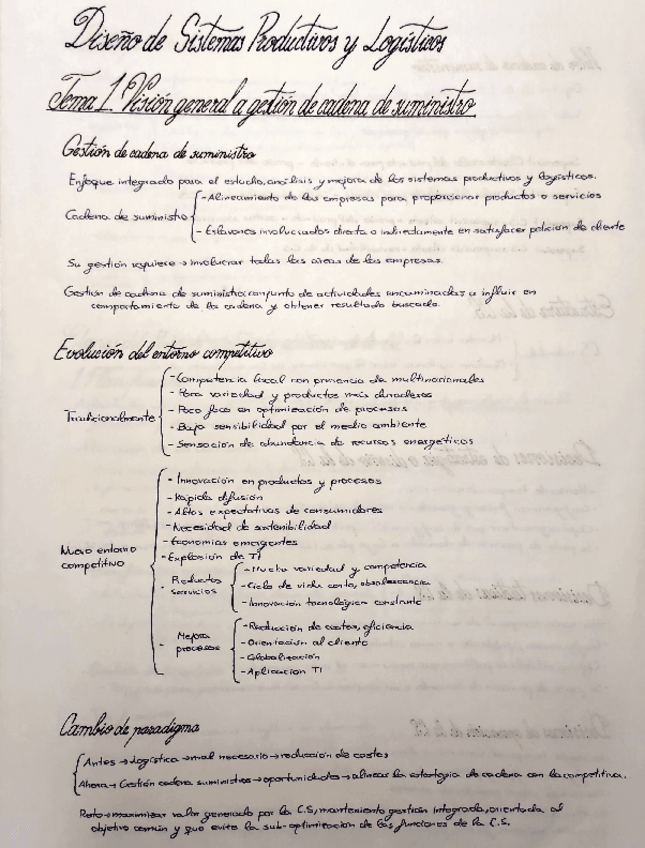 Diseño de Sistemas Productivos y Logísticos
Tema 1. Visión general a gestión de cadena de suministro.
Gestión de cadena de suministro
Enfoque integrado para el estudio, análisis y mejora de los sistemas productivos y logísticos.
Cadena de suministro
- Alineamiento de las empresas para proporcionar productos o servicios
- Eslavones involucrados directa o indirectamente en satisfacer petición de cliente
Su gestión requiere → involucrar todas las áreas de las empresas.
Gestión de cadena de suministro: conjunto de actividades encaminadas a influir en
comportamiento de la cadena y obtener resultado buscado.
Evolución del entorno competitivo
Tradicionalmente
- Competencia local con presencia de multinacionales
- Poca variedad y productos más duraderos
- Poco foco en optimización de procesos
- Baja sensibilidad por el medio ambiente
- Sensación de abundancia de recursos energéticos
Nuevo entorno
competitivo
- Innovación en productos y procesos
- Rápida difusión
- Altas expectativas de consumidores
- Necesidad de sostenibilidad
- Economías emergentes
- Explosión de TI
- Productos
servicios
- Mucha variedad y competencia
- Ciclo de vida corto, obsolescencia
- Innovación tecnológica constante
- Mejora
procesos
- Reducción de costes, eficiencia
- Orientación al cliente
- Globalización
- Aplicación TI
Cambio de paradigma
Antes → Logística → mal necesario → reducción de costes
Ahora → Gestión cadena suministros → oportunidades → alinear la estrategia de cadena con la competitiva.
Reto → maximizar valor generado por la C.S, manteniento gestión integrada, orientada al
objetivo común y que evite la sub-optimización de las funciones de la C.S.